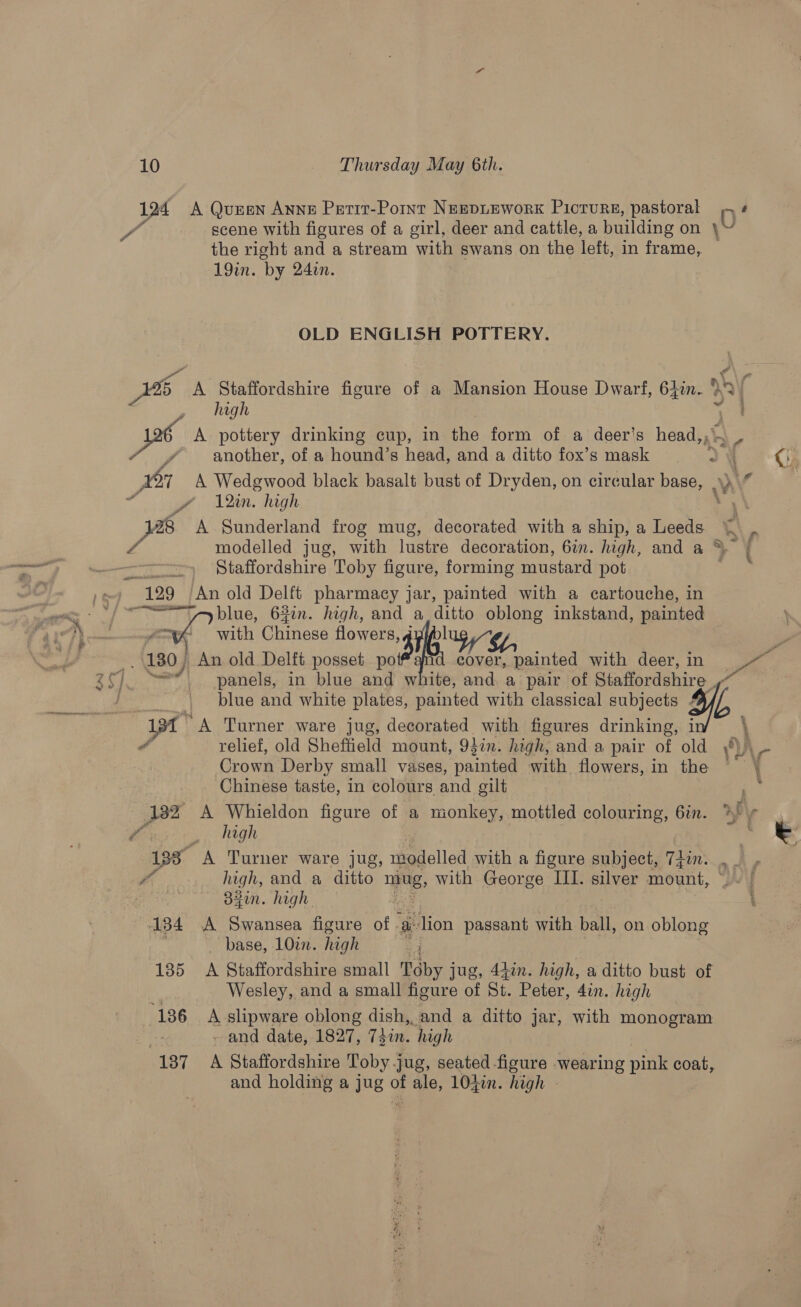 10 Thursday May 6th.
124 A Queen Anne Petit-Point Needlework Picture, pastoral
scene with figures of a girl, deer and cattle, a building on
the right and a stream with swans on the left, in frame,
19in. by 24in.
OLD ENGLISH POTTERY.
125 A Staffordshire figure of a Mansion House Dwarf, 6½in.
high
126 A pottery drinking cup, in the form of a deer's head,
another, of a hound's head, and a ditto fox's mask
127 A Wedgwood black basalt bust of Dryden, on circular base,
12in. high
128 A Sunderland frog mug, decorated with a ship, a Leeds
modelled jug, with lustre decoration, 6in. high, and a
Staffordshire Toby figure, forming mustard pot
129 An old Delft pharmacy jar, painted with a cartouche, in
blue, 6¾in. high, and a ditto oblong inkstand, painted
with Chinese flowers, in blue
130 An old Delft posset pot and cover, painted with deer, in
panels, in blue and white, and a pair of Staffordshire
blue and white plates, painted with classical subjects
131 A Turner ware jug, decorated with figures drinking, in
relief, old Sheffield mount, 9½in. high, and a pair of old
Crown Derby small vases, painted with flowers, in the
Chinese taste, in colours and gilt
132 A Whieldon figure of a monkey, mottled colouring, 6in.
high
133 A Turner ware jug, modelled with a figure subject, 7¼in.
high, and a ditto mug, with George III. silver mount,
3¾in. high
134 A Swansea figure of a lion passant with ball, on oblong
base, 10in. high
135 A Staffordshire small Toby jug, 4½in. high, a ditto bust of
Wesley, and a small figure of St. Peter, 4in. high
136 A slipware oblong dish, and a ditto jar, with monogram
and date, 1827, 7½in. high
137 A Staffordshire Toby jug, seated figure wearing pink coat,
and holding a jug of ale, 10½in. high